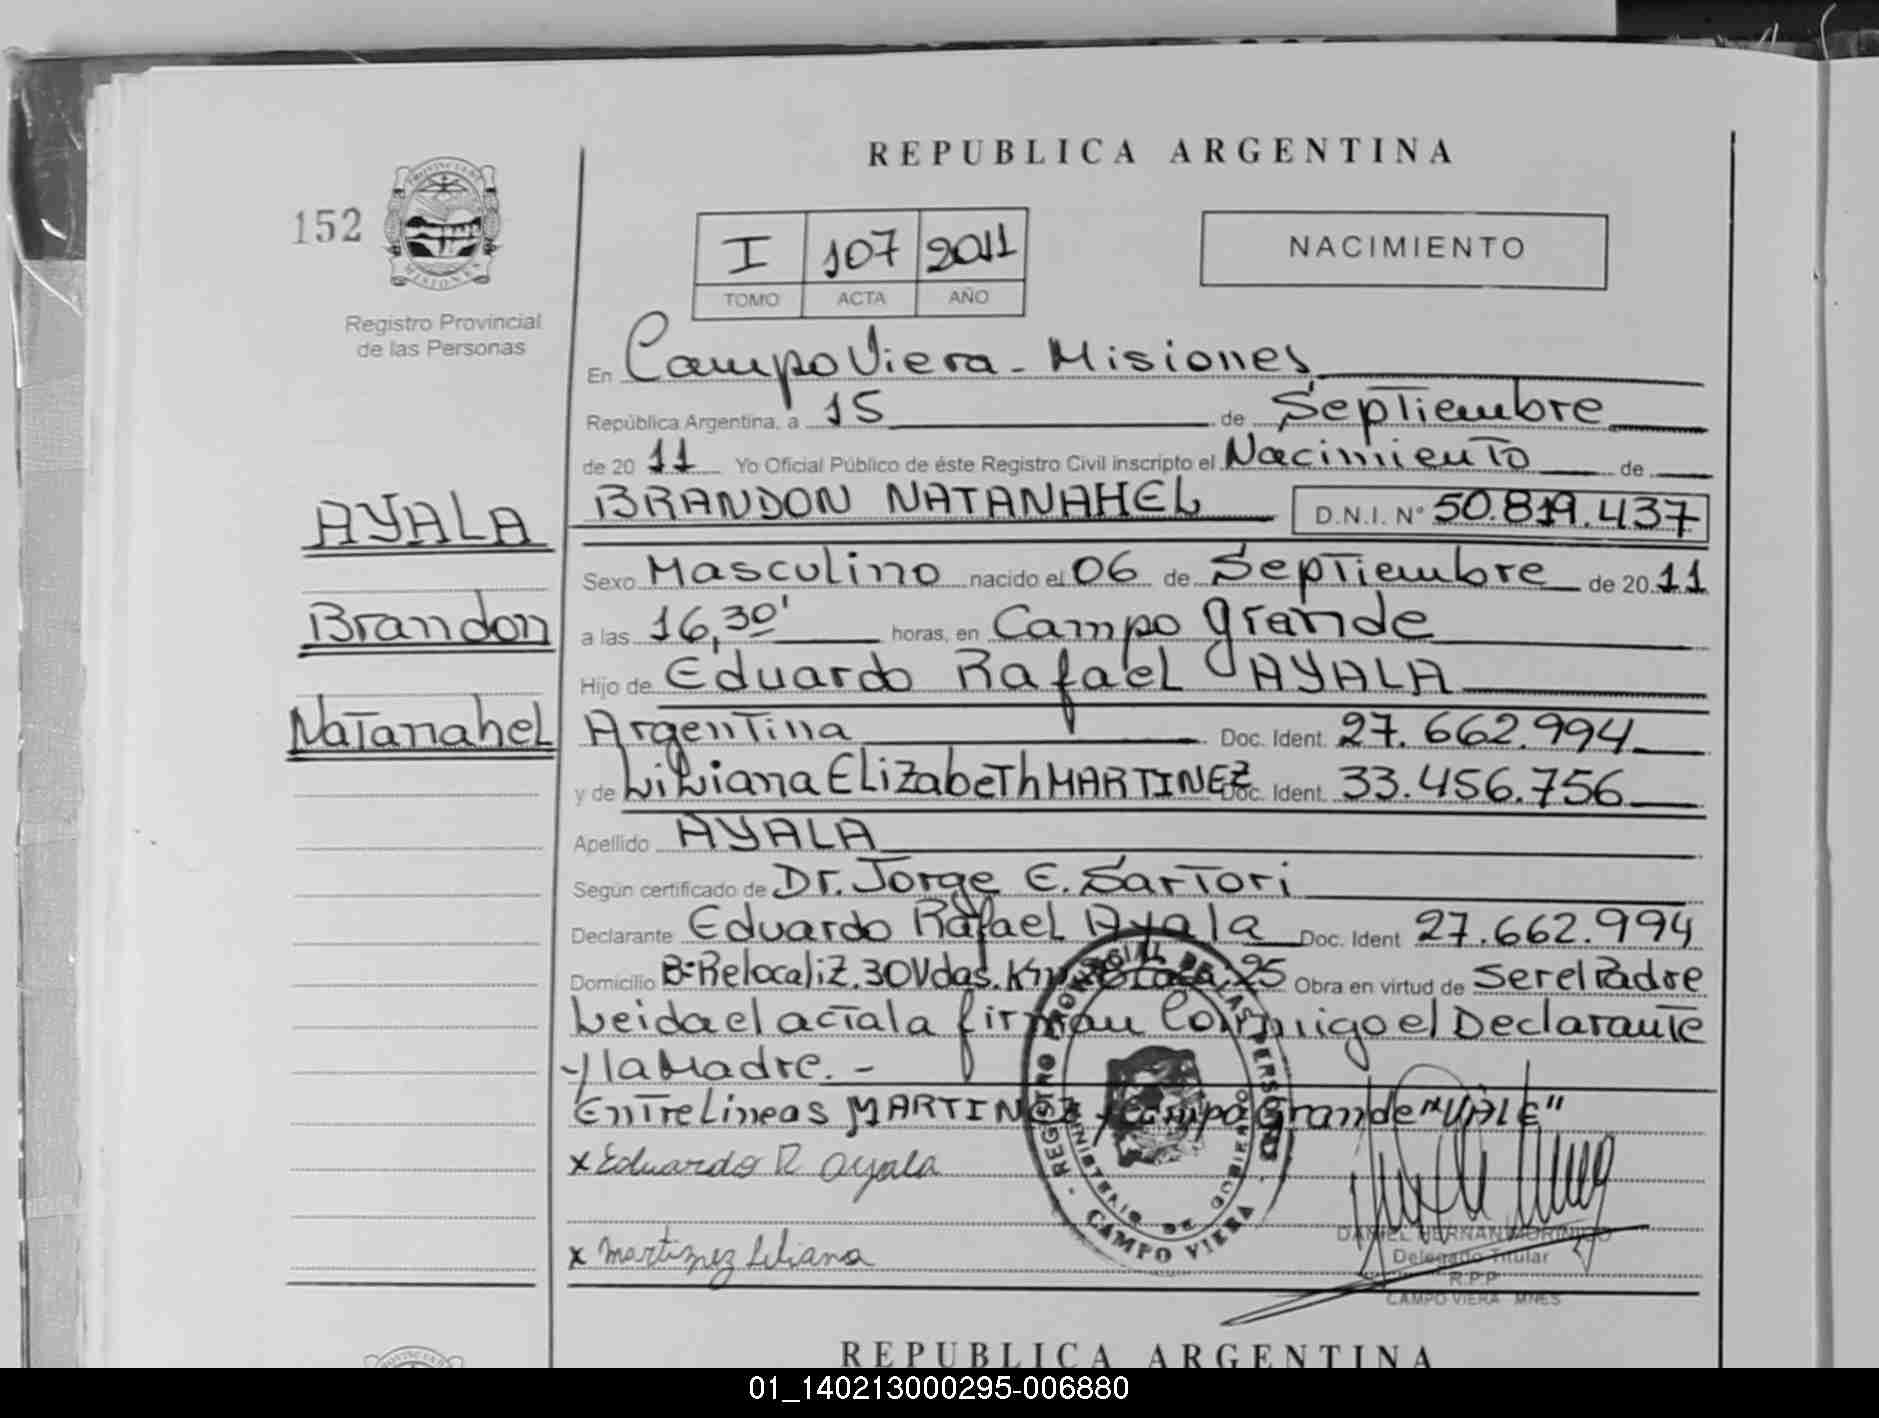 REPUBLICA ARGENTINA
152
PROVINCIA DE
MISIONES
Registro Provincial
de las Personas
I 107 2011
TOMO ACTA AÑO
NACIMIENTO
En Campo Viera - Misiones
República Argentina, a 15 de Septiembre
de 20 11 Yo Oficial Público de éste Registro Civil inscripto el Nacimiento de
AYALA
BRANDON NATANAHEL D.N.I. N° 50.819.437
Sexo Masculino nacido el 06 de Septiembre de 20 11
Brandon
a las 16,30' horas, en Campo Grande
Hijo de Eduardo Rafael AYALA
Natanahel
Argentina Doc. Ident. 27.662.994
y de Liliana Elizabeth MARTINEZ Doc. Ident. 33.456.756
Apellido AYALA
Según certificado de Dr. Jorge E. Sartori
Declarante Eduardo Rafael Ayala Doc. Ident 27.662.994
Domicilio B= Relocaliz. 30 Vdas. Km. Casa: 25 Obra en virtud de Ser el Padre
Leida el acta la firman Conmigo el Declarante
y la Madre. -
Entrelineas MARTINEZ y Campo Grande "VALE"
x Eduardo R Ayala
x Martinez Liliana
REGISTRO PROVINCIAL DE LAS PERSONAS
MINISTERIO DE GOBIERNO
- CAMPO VIERA -
DANIEL HERNAN MORINIGO
Delegado Titular
R.P.P
CAMPO VIERA MNES
REPUBLICA ARGENTINA
01_140213000295-006880